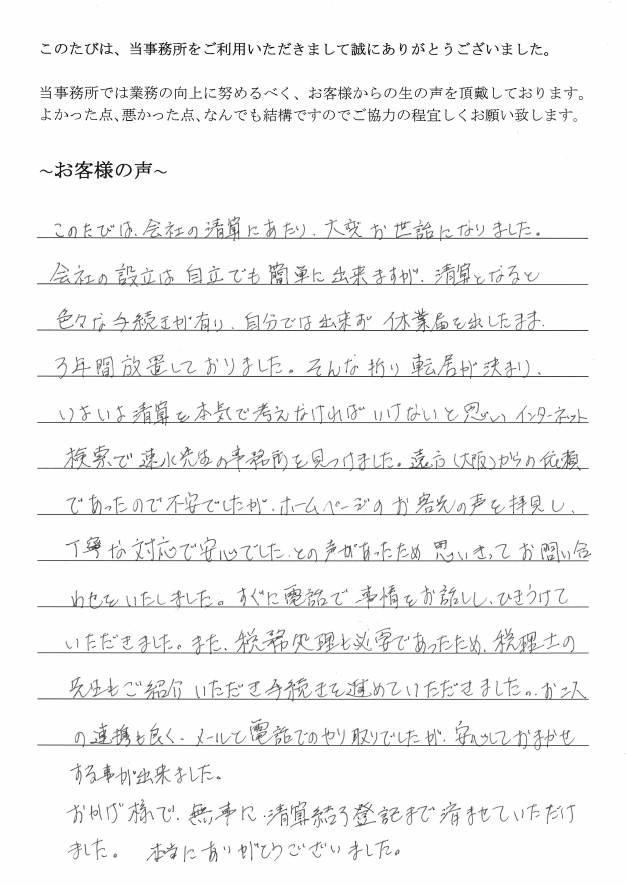 このたびは、当事務所をご利用いただきまして誠にありがとうございました。
当事務所では業務の向上に努めるべく、お客様からの生の声を頂戴しております。
よかった点、悪かった点、なんでも結構ですのでご協力の程宜しくお願い致します。
~お客様の声~
このたびは、会社の清算にあたり、大変お世話になりました。
会社の設立は自立でも簡単に出来ますが、清算となると
色々な手続きが有り、自分では出来ず 休業届を出したまま、
3年間放置しておりました。そんな折り転居が決まり、
いよいよ清算を本気で考えなければいけないと思い インターネット
検索で速水先生の事務所を見つけました。遠方(大阪)からの依頼
であったので不安でしたが、ホームページのお客先の声を拝見し、
丁寧な対応で安心でした、との声があったため 思いきって お問い合
わせをいたしました。すぐに電話で事情をお話しし、ひきうけて
いただきました。また、税務処理も必要であったため、税理士の
先生もご紹介 いただき手続きを進めていただきました。お二人
の連携も良く、メールと電話でのやり取りでしたが、安心しておまかせ
する事が出来ました。
おかげ様で、無事に、清算結了登記まで済ませていただけ
ました。 本当にありがとうございました。